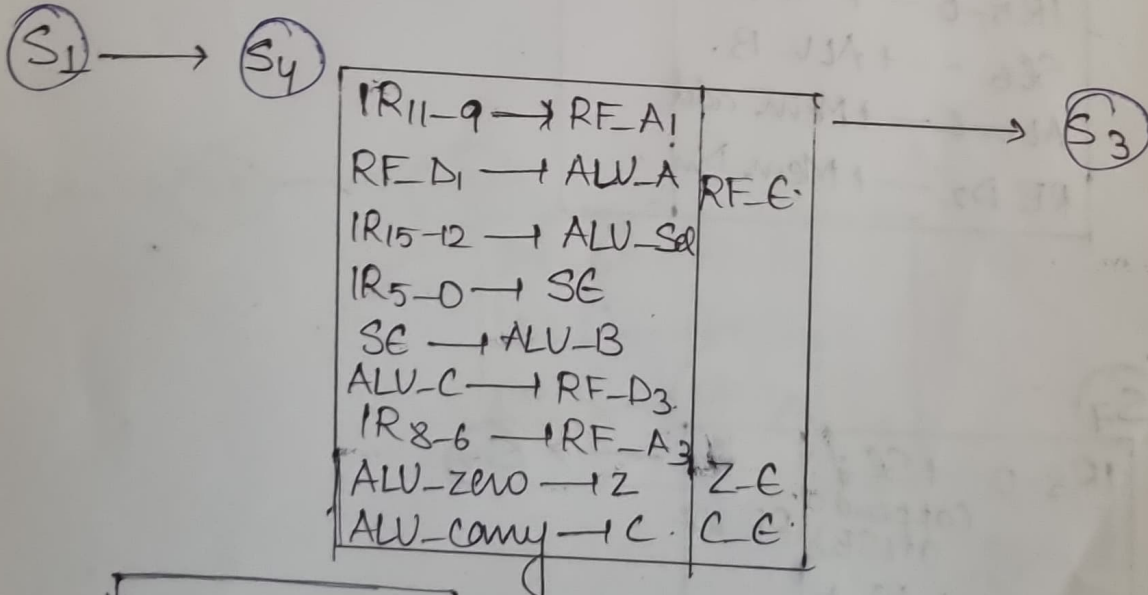 S1 → S4
IR11-9 → RF_A1
RF_D1 → ALU_A
RF_E
IR15-12 → ALU_Sel
IR5-0 → SE
SE → ALU_B
ALU_C → RF_D3
IR8-6 → RF_A3
ALU_zero → Z Z_E
ALU_carry → C C_E
→ S3